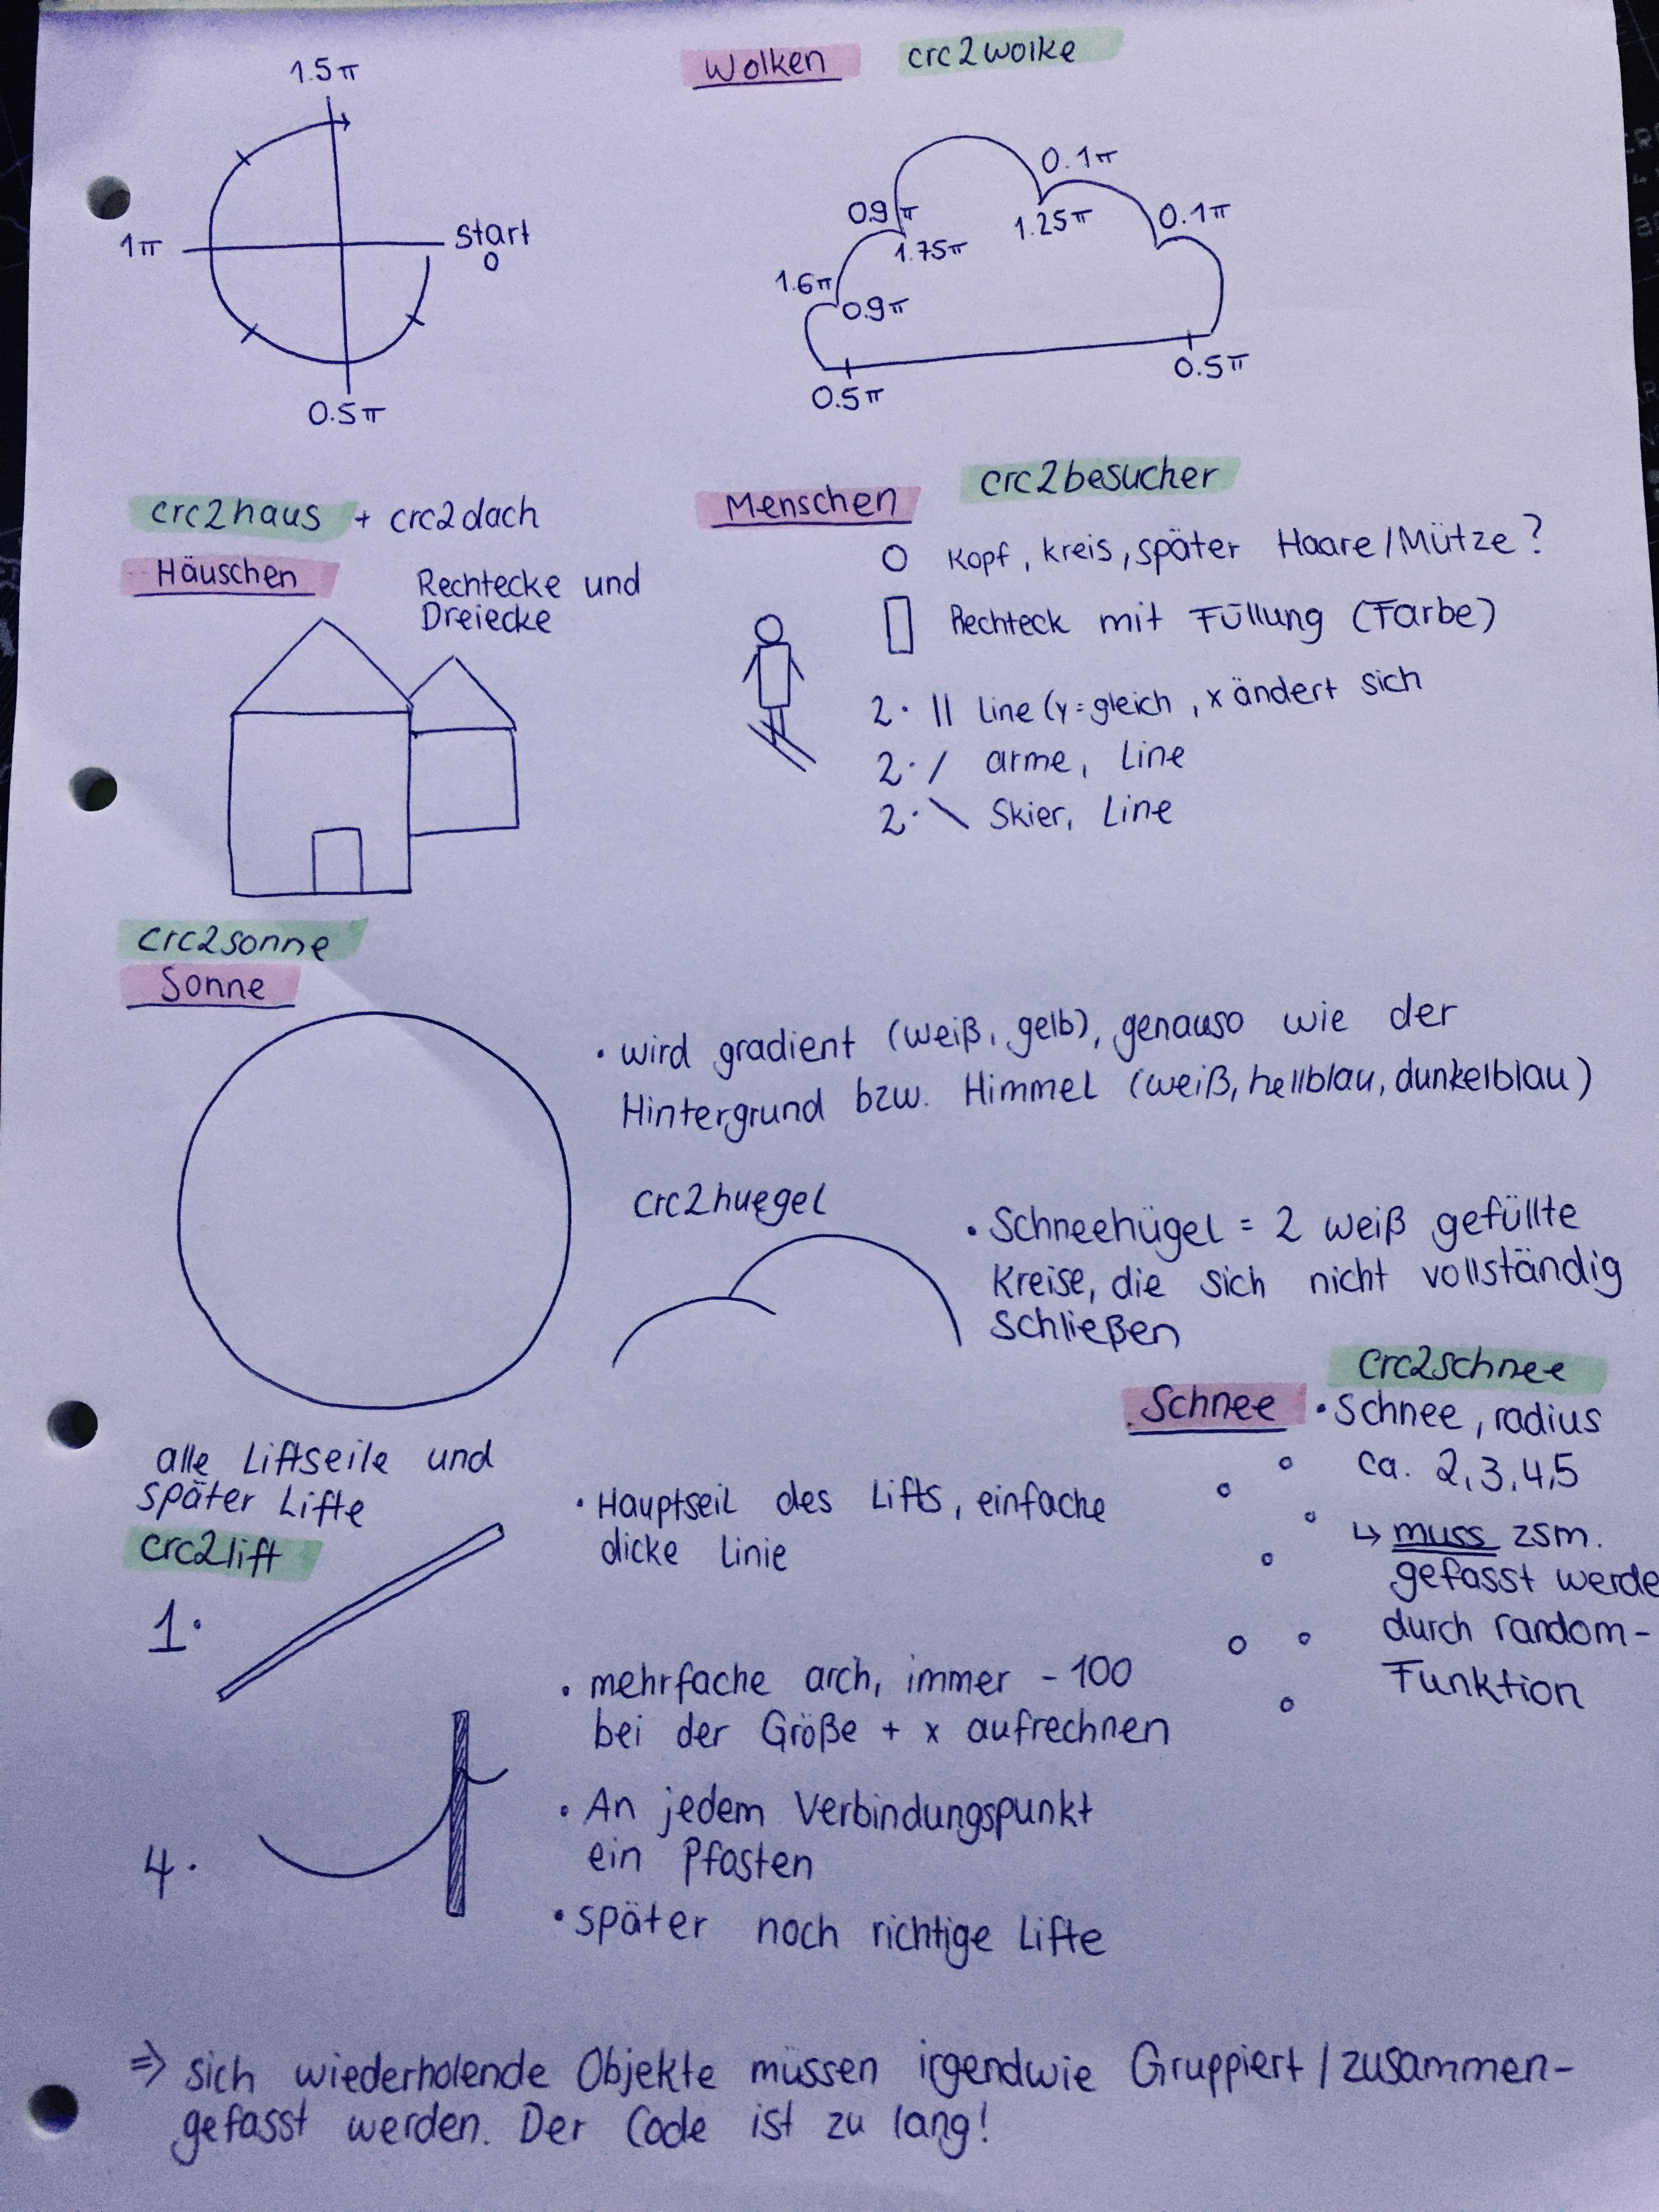 1.5π
1π
Start
0
0.5π
Wolken crc2wolke
0.1π
0.9π
1.75π
1.25π
0.1π
1.6π
0.9π
0.5π
0.5π
crc2haus + crc2dach
Häuschen
Rechtecke und
Dreiecke
Menschen crc2besucher
Kopf, kreis, später Haare/Mütze?
Rechteck mit Füllung (Farbe)
2· || Line (y=gleich, x ändert sich
2· / arme, Line
2· \ Skier, Line
crc2sonne
Sonne
• wird gradient (weiß, gelb), genauso wie der
Hintergrund bzw. Himmel (weiß, hellblau, dunkelblau)
crc2huegel
• Schneehügel = 2 weiß gefüllte
Kreise, die sich nicht vollständig
Schließen
Schnee
crc2schnee
• Schnee, radius
ca. 2,3,4,5
↳ muss zsm.
gefasst werde
durch random-
Funktion
alle Liftseile und
später Lifte
crc2lift
1.
• Hauptseil des Lifts, einfache
dicke Linie
4.
• mehrfache arch, immer -100
bei der Größe + x aufrechnen
• An jedem Verbindungspunkt
ein Pfosten
• später noch richtige Lifte
⇒ sich wiederholende Objekte müssen irgendwie Gruppiert/zusammen-
gefasst werden. Der Code ist zu lang!